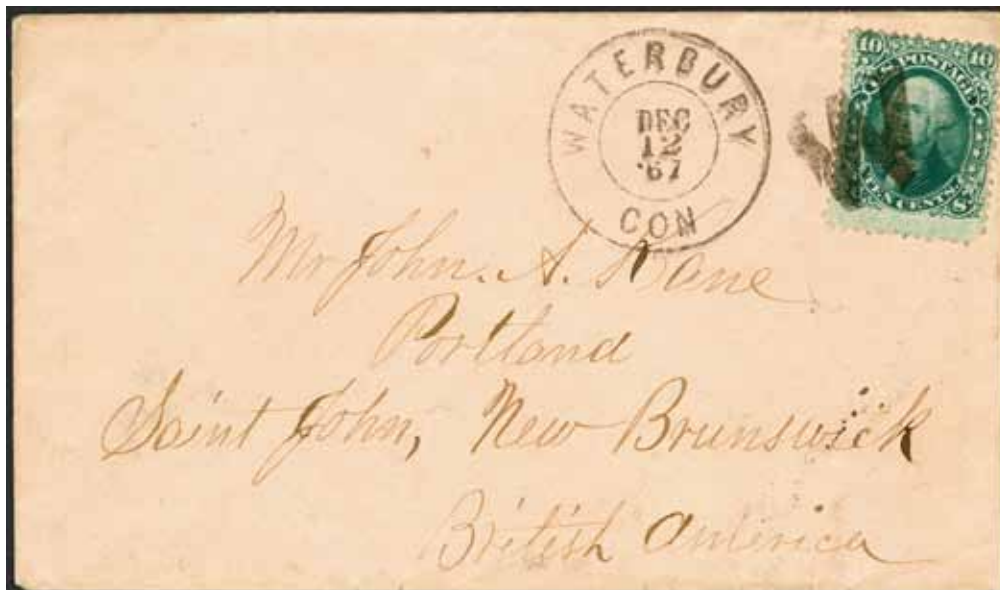 WATERBURY
DEC
12
'67
CON
10 U.S. POSTAGE 10
TEN CENTS
Mr John. A. Kane
Portland
Saint John, New Brunswick
British America